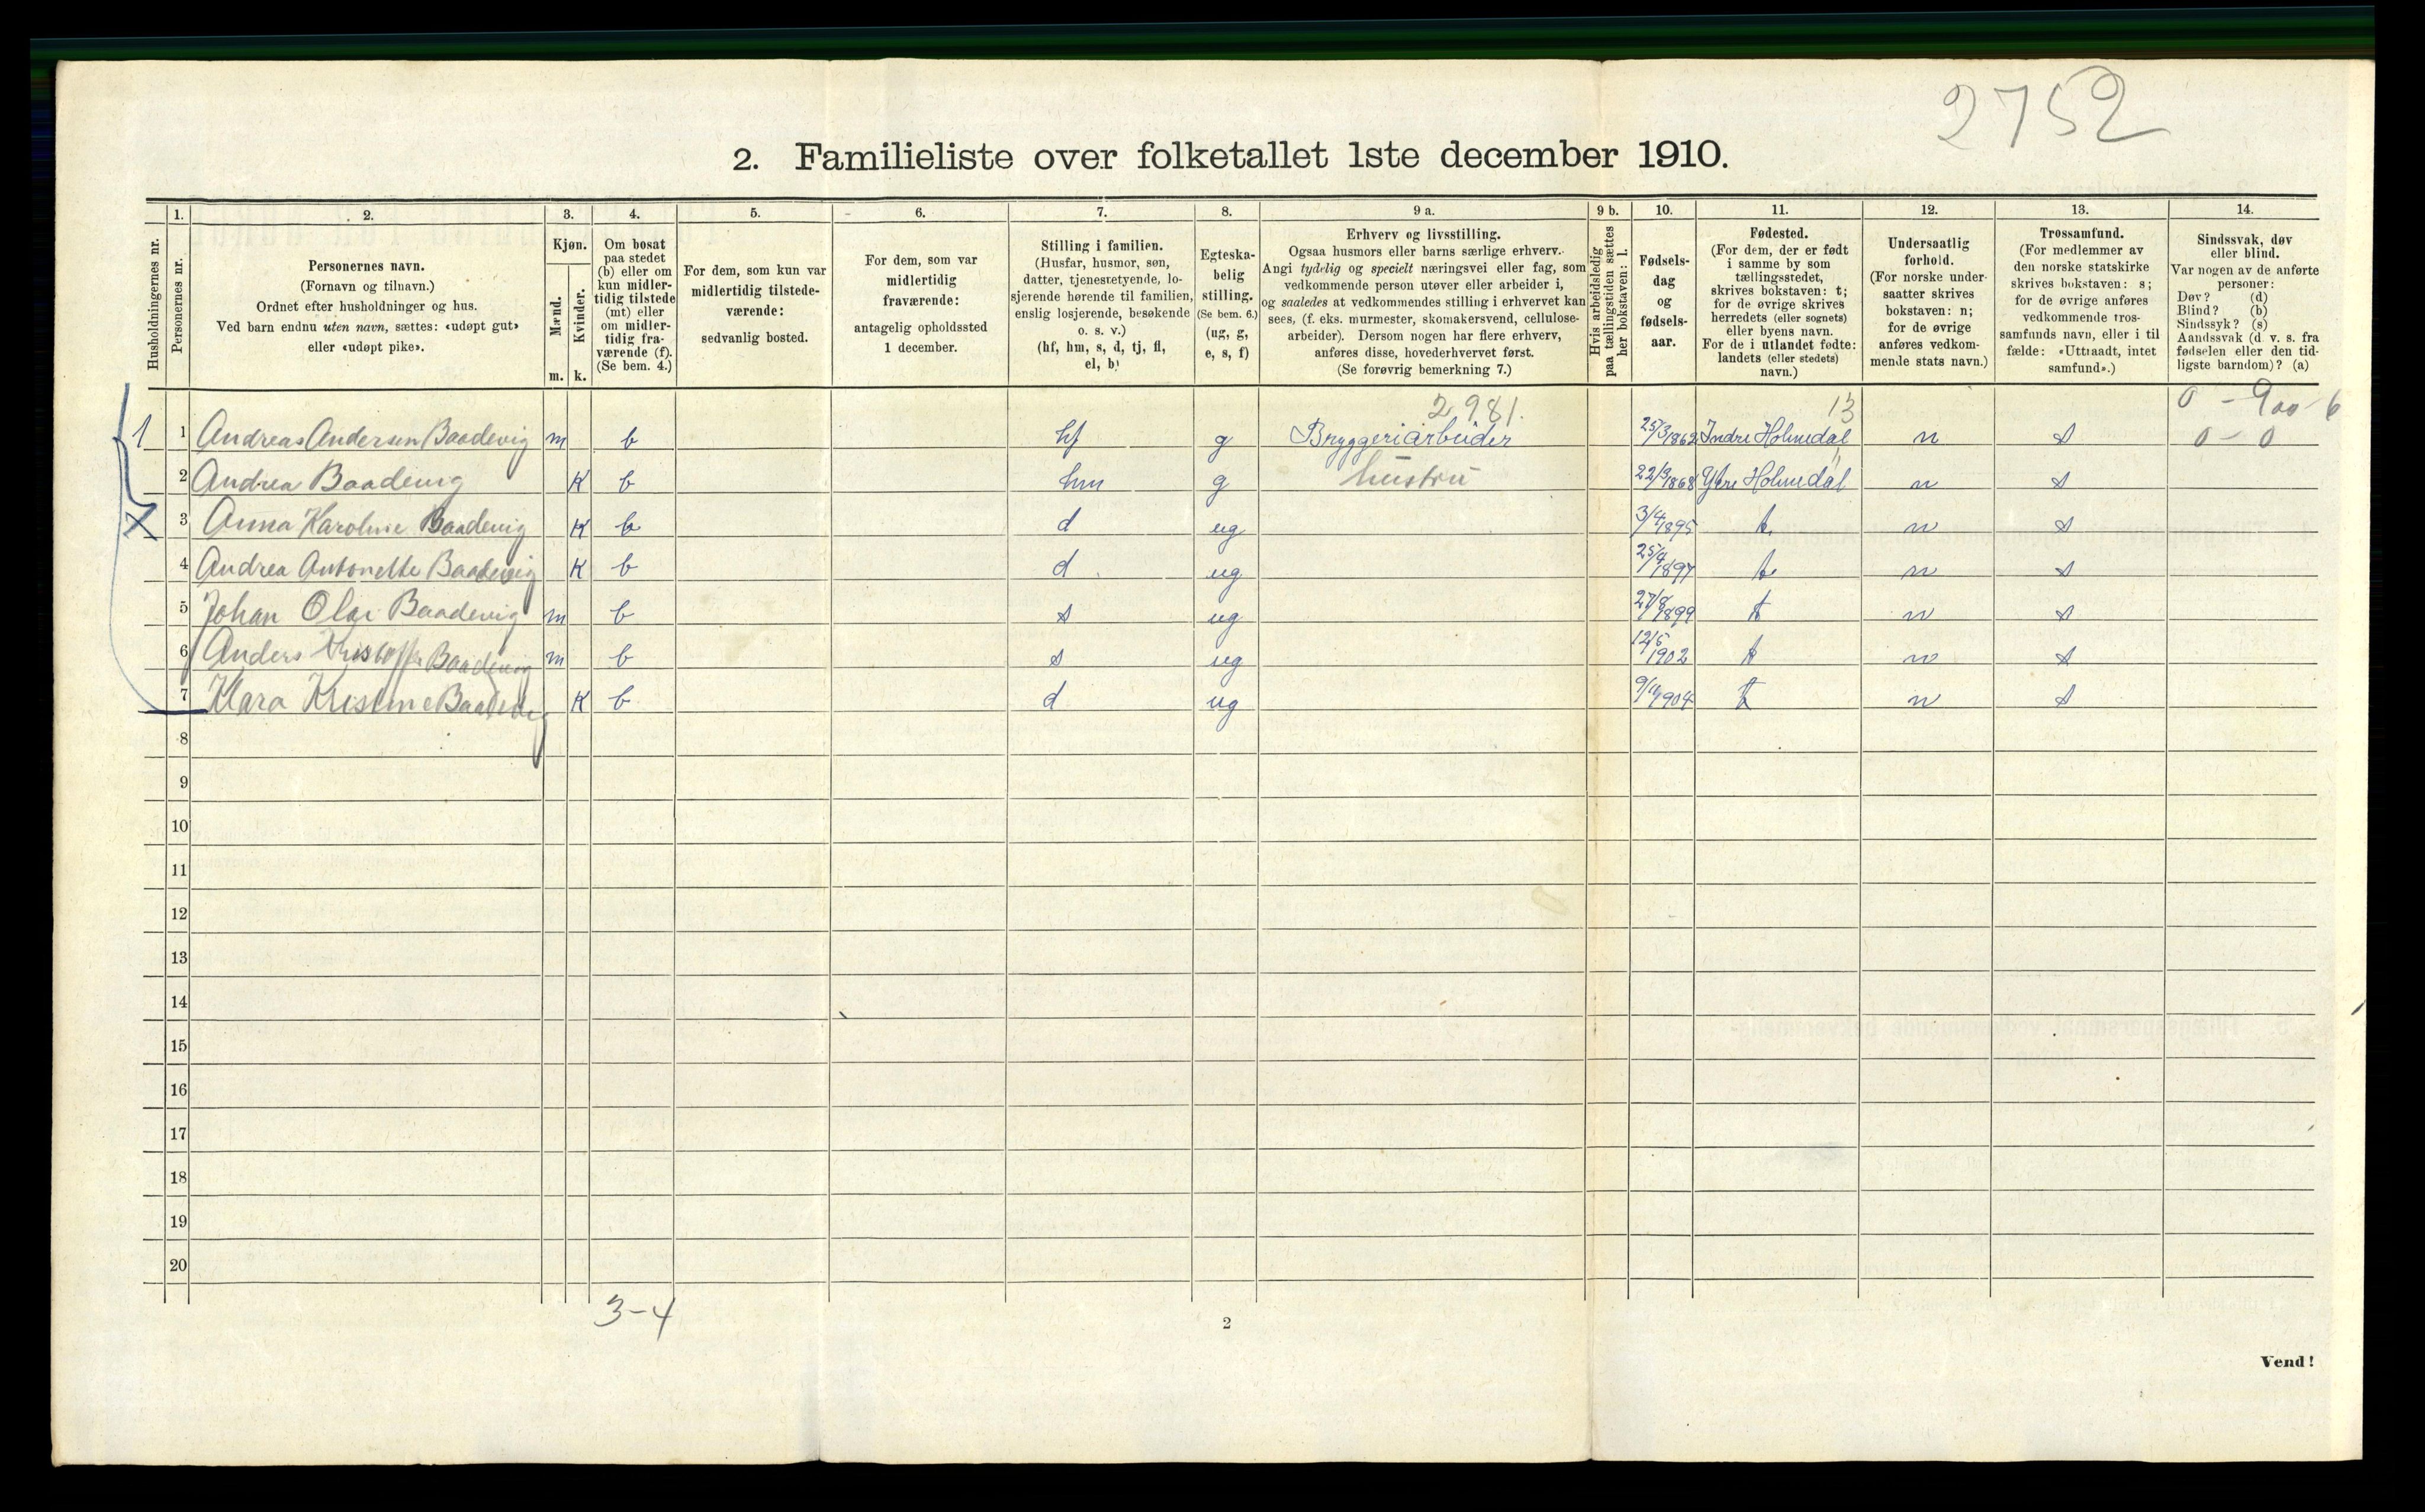 2752
2. Familieliste over folketallet 1ste december 1910.
Husholdningernes nr.
1.
Personernes nr.
2.
Personernes navn.
(Fornavn og tilnavn.)
Ordnet efter husholdninger og hus.
Ved barn endnu uten navn, sættes: «udøpt gut»
eller «udøpt pike».
3.
Kjøn.
Mænd.
Kvinder.
m. k.
4.
Om bosat
paa stedet
(b) eller om
kun midler-
tidig tilstede
(mt) eller
om midler-
tidig fra-
værende (f).
(Se bem. 4.)
5.
For dem, som kun var
midlertidig tilstede-
værende:
sedvanlig bosted.
6.
For dem, som var
midlertidig
fraværende:
antagelig opholdssted
1 december.
7.
Stilling i familien.
(Husfar, husmor, søn,
datter, tjenestetyende, lo-
sjerende hørende til familien,
enslig losjerende, besøkende
o. s. v.)
(hf, hm, s, d, tj, fl,
el, b)
8.
Egteska-
belig
stilling.
(Se bem. 6.)
(ug, g,
e, s, f)
9 a.
Erhverv og livsstilling.
Ogsaa husmors eller barns særlige erhverv.
Angi tydelig og specielt næringsvei eller fag, som
vedkommende person utøver eller arbeider i,
og saaledes at vedkommendes stilling i erhvervet kan
sees, (f. eks. murmester, skomakersvend, cellulose-
arbeider). Dersom nogen har flere erhverv,
anføres disse, hovederhvervet først.
(Se forøvrig bemerkning 7.)
9 b.
Hvis arbeidsledig
paa tællingstiden sættes
her bokstaven: l.
10.
Fødsels-
dag
og
fødsels-
aar.
11.
Fødested.
(For dem, der er født
i samme by som
tællingsstedet,
skrives bokstaven: t;
for de øvrige skrives
herredets (eller sognets)
eller byens navn.
For de i utlandet fødte:
landets (eller stedets)
navn.)
12.
Undersaatlig
forhold.
(For norske under-
saatter skrives
bokstaven: n;
for de øvrige
anføres vedkom-
mende stats navn.)
13.
Trossamfund.
(For medlemmer av
den norske statskirke
skrives bokstaven: s;
for de øvrige anføres
vedkommende tros-
samfunds navn, eller i til
fælde: «Uttraadt, intet
samfund».)
14.
Sindssvak, døv
eller blind.
Var nogen av de anførte
personer:
Døv? (d)
Blind? (b)
Sindssyk? (s)
Aandssvak (d. v. s. fra
fødselen eller den tid-
ligste barndom)? (a)
2981. 13 0 - 900 - 6
1 1 Andreas Andersen Baadevig m b hf g Bryggeriarbeider 25/3 1862 Indre Holmedal n s 0 - 0
2 Andrea Baadevig K b hm g hustru 22/3 1868 Ytre Holmedal n s
X 3 Anna Karoline Baadevig K b d ug 3/4 1895 t n s
4 Andrea Antonette Baadevig K b d ug 25/4 1897 t n s
5 Johan Olai Baadevig m b s ug 27/8 1899 t n s
6 Anders Kristoffer Baadevig m b s ug 12/5 1902 t n s
7 Klara Kristine Baadevig K b d ug 9/11 1904 t n s
8
9
10
11
12
13
14
15
16
17
18
19
20
3-4
2
Vend!